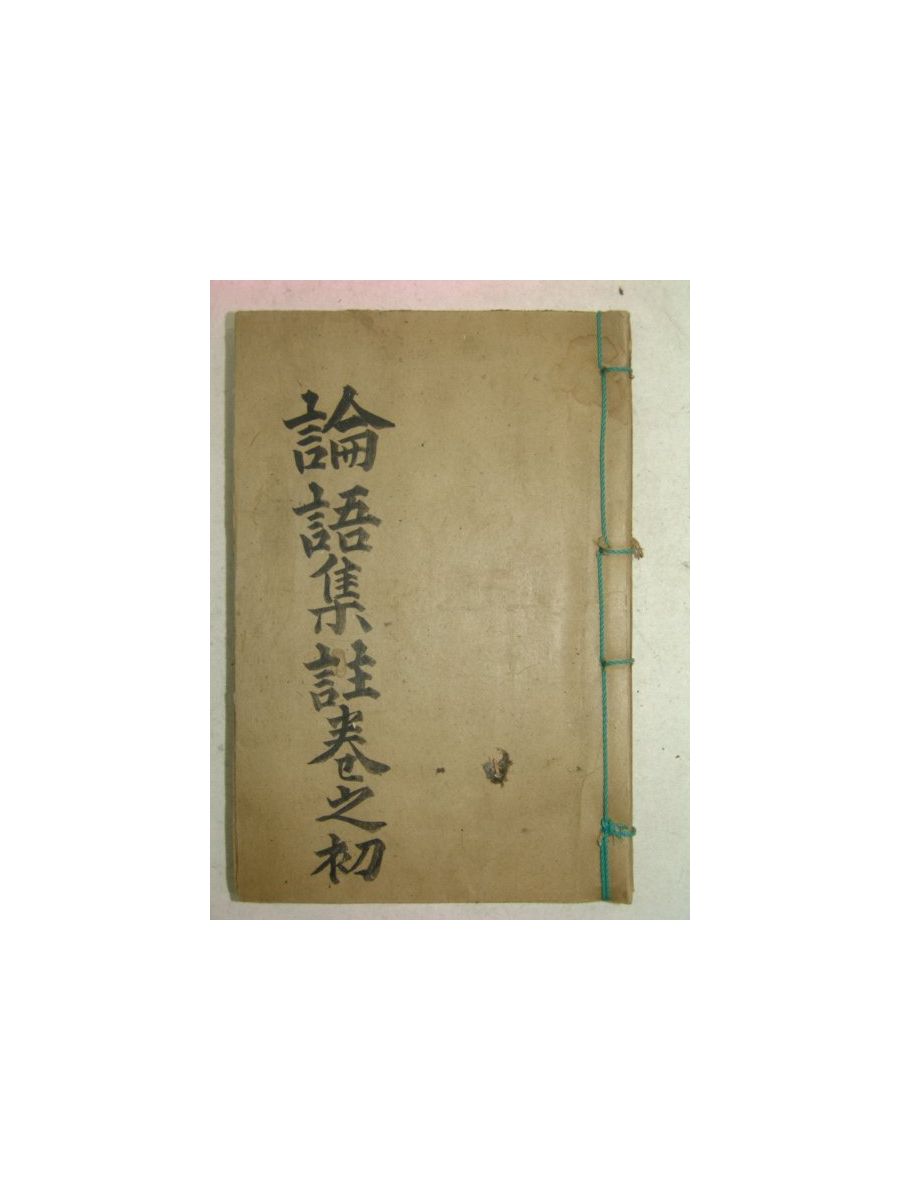 論語集註卷之初